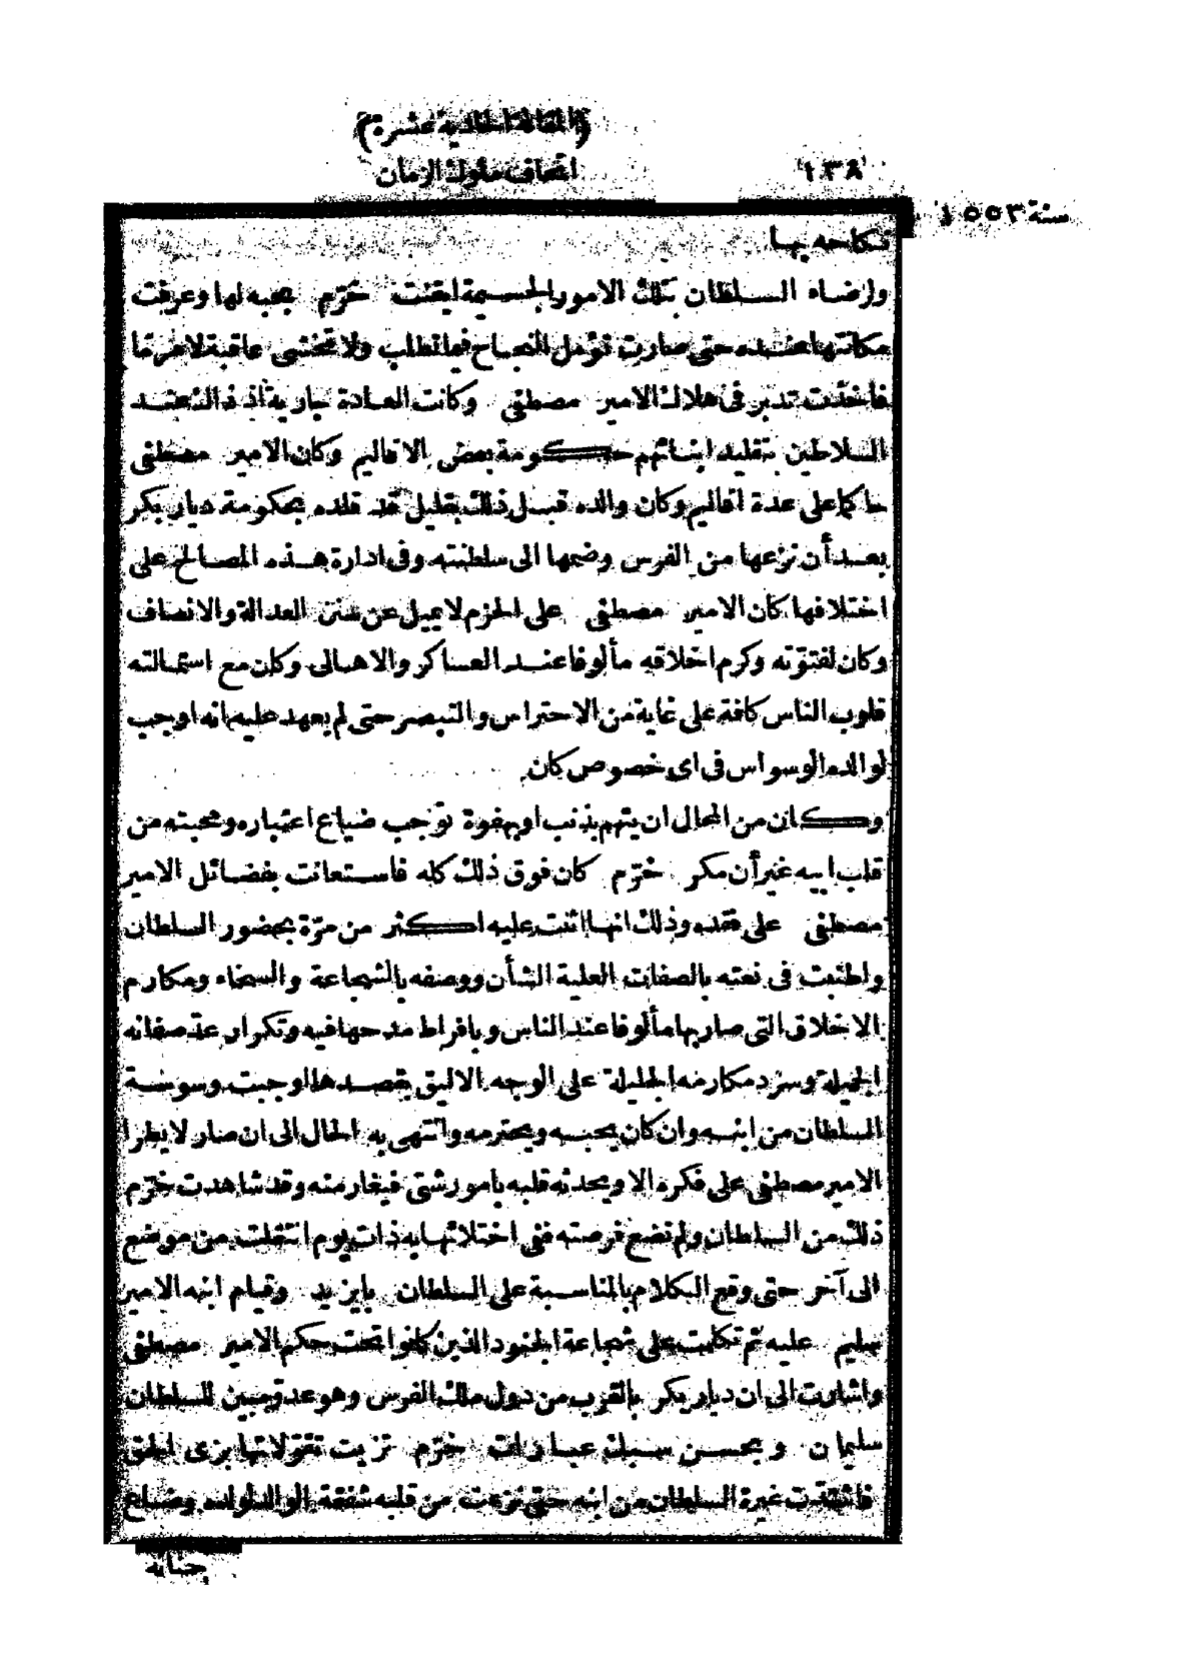 (المقالة الحادية عشرة)
١٣٨
اتحاف ملوك الزمان
سنة ١٥٥٣
نكاحه بها
وارضاه السلطان بتلك الامور الجسيمة ايقنت خرّم بحبه لها وعرفت
مكانتها عنده حتى صارت تؤمل النجاح فيما تطلب ولا تخشى عاقبة لامر ما
فاخذت تدبر فى هلاك الامير مصطفى وكانت العادة جارية اذ ذاك عند
السلاطين بتقليد ابنائهم حكومة بعض الاقاليم وكان الامير مصطفى
حاكما على عدة اقاليم وكان والده قبل ذلك بقليل قد قلده بحكومة ديار بكر
بعد أن نزعها من الفرس وضمها الى سلطنته وفى ادارة هذه المصالح على
اختلافها كان الامير مصطفى على الحزم لا يميل عن سنن العدالة والانصاف
وكان لفتوّته وكرم اخلاقه مألوفا عند العساكر والاهالى وكان مع استمالته
قلوب الناس كافة على غاية من الاحتراس والتبصر حتى لم يعهد عليه انه اوجب
لوالده الوسواس فى اى خصوص كان
وكان من المحال ان يتهم بذنب او بهفوة توجب ضياع اعتباره ومحبته من
قلب ابيه غير أن مكر خرّم كان فوق ذلك كله فاستعانت بفضائل الامير
مصطفى على فقده وذلك انها اثنت عليه اكثر من مرّة بحضور السلطان
واطنبت فى نعته بالصفات العلية الشأن ووصفه بالشجاعة والسخاء ومكارم
الاخلاق التى صار بها مألوفا عند الناس وبافراط مدحها فيه وتكرار عدّ صفاته
الجميلة وسرد مكارمه الجليلة على الوجه الاليق بقصدها اوجبت وسوسة
السلطان من ابنه وان كان يحبه ويحترمه وانتهى به الحال الى ان صار لا يطرا
الامير مصطفى على فكره الا ويحدثه قلبه بامور شتى فيغار منه وقد شاهدت خرّم
ذلك من السلطان ولم تضع فرصته ففى اختلائها به ذات يوم انتقلت من موضع
الى آخر حتى وقع الكلام بالمناسبة على السلطان بايزيد وقيام ابنه الامير
سليم عليه ثم تكلمت على شجاعة الجنود الذين كانوا تحت حكم الامير مصطفى
واشارت الى ان ديار بكر بالقرب من دول ملك الفرس وهو عدوّ مبين للسلطان
سليمان وبحسن سبك عبارات خرّم تزيت تقوّلاتها بزى الحق
فاشتدت غيرة السلطان من ابنه حتى نزعت من قلبه شفقة الوالد لولده وضياع
جنابه